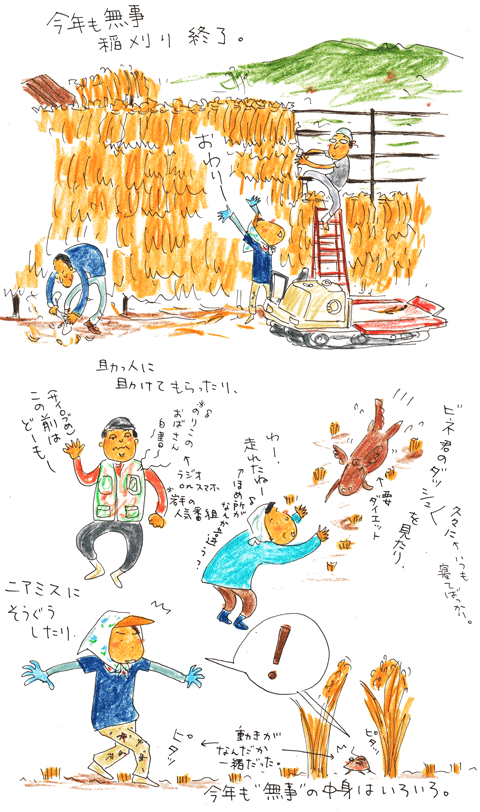 今年も無事
稲刈り終了。
おわりー
助っ人に
助けてもらったり、
この前は
どーもー
おばさん
白書
ラジオ
onスマホ
岩手の
人気番組
ビネ君のダッシュ
を見たり、
久々にゃ、いつも
寝てばっかい。
要
ダイエット
わー!
走れたね
ほめ所が
なんか違う?
ニアミスに
そうぐう
したり、
!
ピタッ
動きが
なんだか
一緒だった。
ピタッ
今年も“無事”の中身はいろいろ。